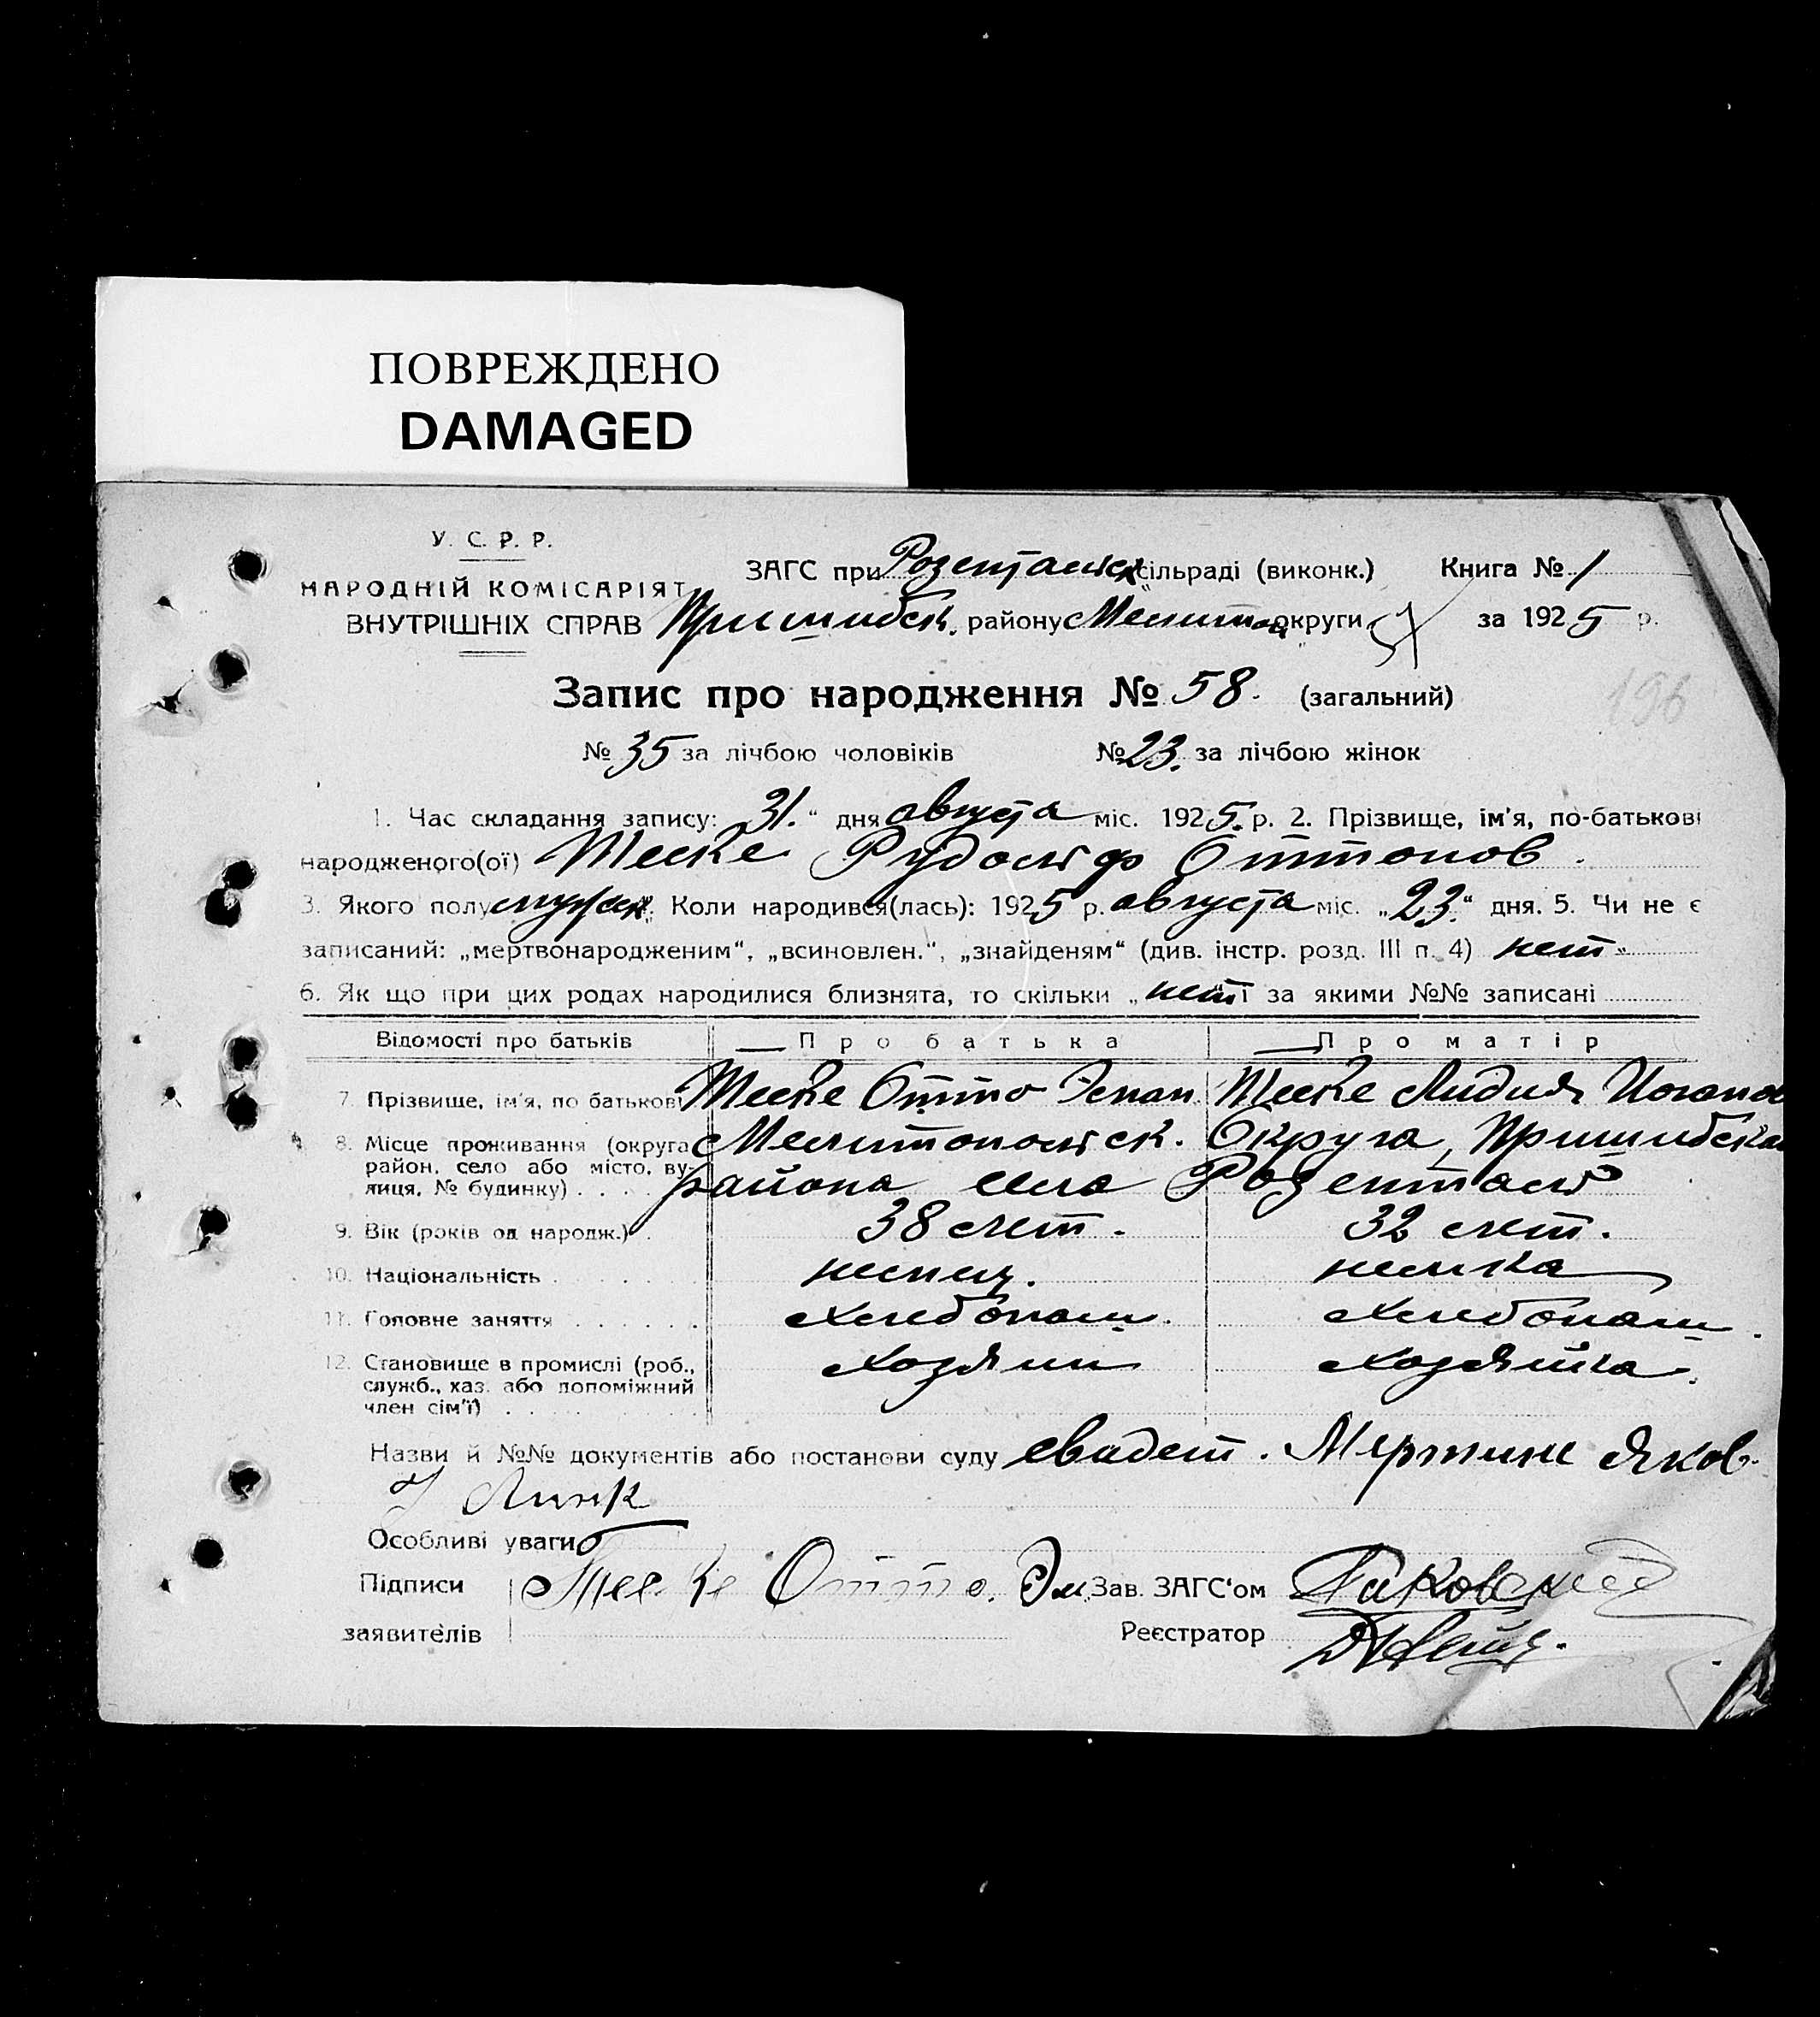 ПОВРЕЖДЕНО
DAMAGED
У. С. Р. Р.
НАРОДНІЙ КОМІСАРІЯТ
ВНУТРІШНІХ СПРАВ
ЗАГС при Розентальск сільраді (виконк.) Книга № 1
Пришибск. району Мелитоп округи за 1925 р.
196
Запис про народження № 58. (загальний)
№ 35 за лічбою чоловіків № 23. за лічбою жінок
1. Час складання запису: 31. “ дня августа міс. 1925. р. 2. Прізвище, ім'я, по-батькові
народженого(ої) Теске Рудольф Оттонов.
3. Якого полу мужск. Коли народився(лась): 1925 р. августа міс. „23.“ дня. 5. Чи не є
записаний: „мертвонародженим“, „всиновлен.“, „знайденям“ (див. інстр. розд. III п. 4) нет
6. Як що при цих родах народилися близнята, то скільки „нет і за якими №№ записані
Відомості про батьків Про батька Про матір
7. Прізвище, ім'я, по батькові Теске Отто Теске Лидия
8. Місце проживання (округа Мелитопольск. Округа, Пришибска
район, село або місто, ву- района село Розенталь
лиця, № будинку)
9. Вік (років од народж.) 38 лет. 32 лет.
10. Національність немец. немка
11. Головне заняття Хлебопаш. Хлебопаш.
12. Становище в промислі (роб., Хозяин Хозяйка.
служб., хаз. або допоміжний
член сім'ї)
Назви й №№ документів або постанови суду свидет. Яков.
Линк
Особливі уваги
Підписи Теске Отто. Эм. Зав. ЗАГС'ом
заявителів Реєстратор